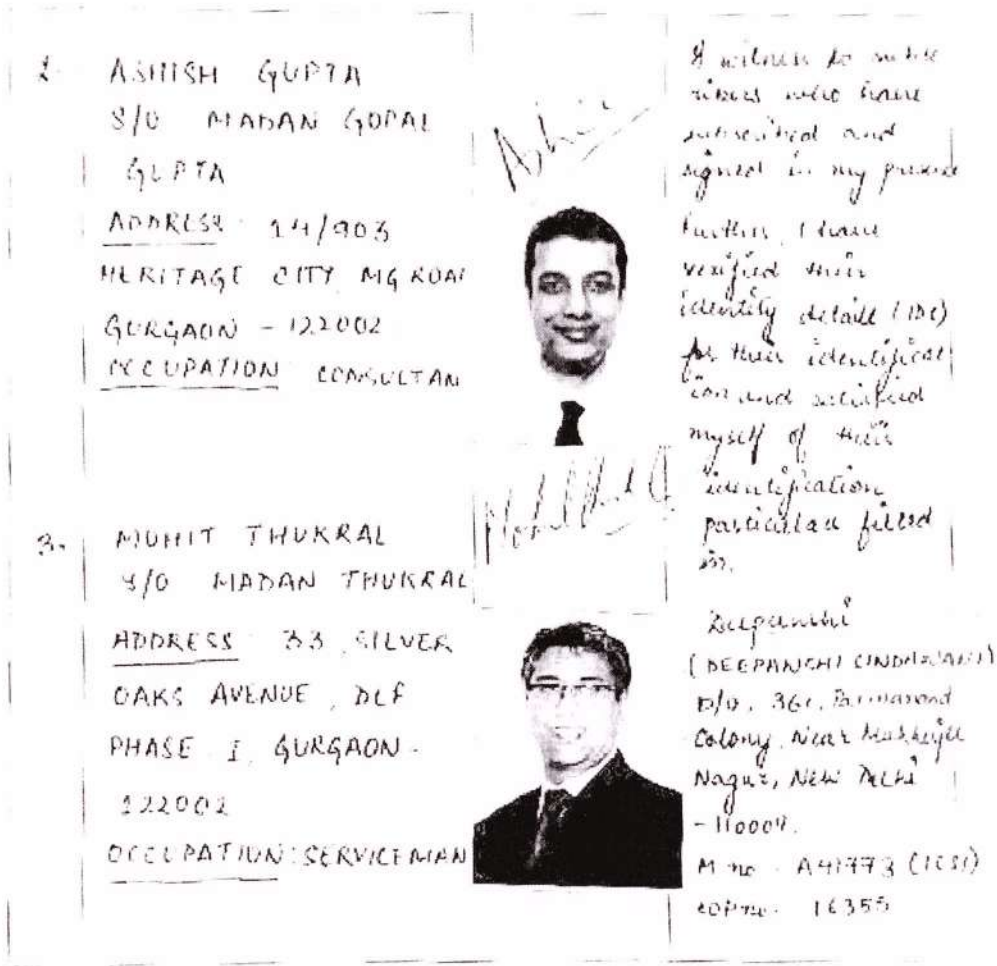 2. ASHISH GUPTA
S/O MADAN GOPAL
GUPTA
ADDRESS 14/903
HERITAGE CITY MG ROA
GURGAON - 122002
OCCUPATION CONSULTAN
Ashis
3. MOHIT THUKRAL
S/O MADAN THUKRAL
ADDRESS 33, SILVER
OAKS AVENUE, DLF
PHASE I, GURGAON -
122002
OCCUPATION: SERVICEMAN
I witness to subsc
ribers who have
subscribed and
signed in my presence
Further, I have
verified their
identity details (IDs)
for their identificat
ion and satisfied
myself of their
identification
particulars filled
in.
Deepanshi
(DEEPANSHI
D/O, 36, Parmanand
Colony, Near Mukherjee
Nagar, New Delhi
M no. A41773 (ICSI)
COP no. 16355